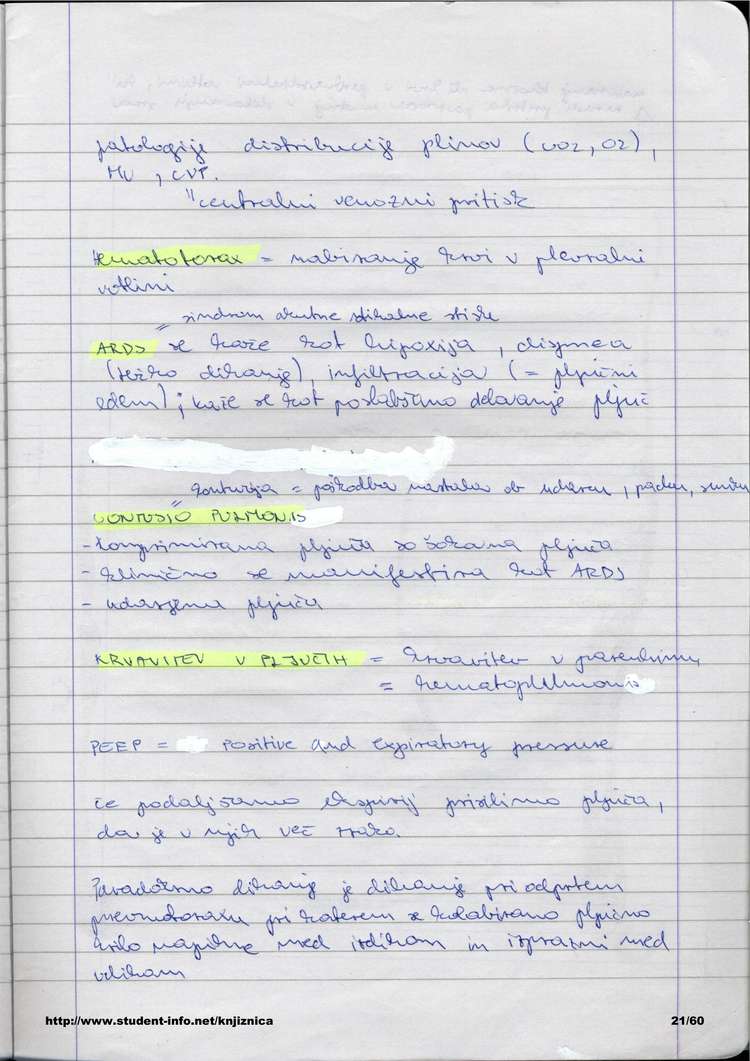 patologije distribucije plinov (CO2, O2),
MV, CVP.
"centralni venozni pritisk
Hematotorax = nabiranje krvi v plevralni
votlini
= sindrom akutne dihalne stiske
ARDS se kaže kot hipoxija, dispnea
(težko dihanje), infiltracija (= pljučni
edem); kaže se kot poslabšano delovanje pljuč
= kontuzija = poškodba nastala ob udarcu, padcu,
CONTUSIO PULMONIS
- komprimirana pljuča so šokana pljuča
- klinično se manifestira kot ARDS
- udarjena pljuča
KRVAVITEV V PLJUČIH = krvavitev v parenhimu
= hematopulmonis
PEEP = positive and expiratory pressure
če podaljšamo ekspirij prisilimo pljuča,
da je v njih več zraka.
Paradoxno dihanje je dihanje pri odprtem
pnevmotoraxu pri katerem se kolabirano pljučno
krilo napihne med izdihom in izprazni med
vdihom
http://www.student-info.net/knjiznica
21/60